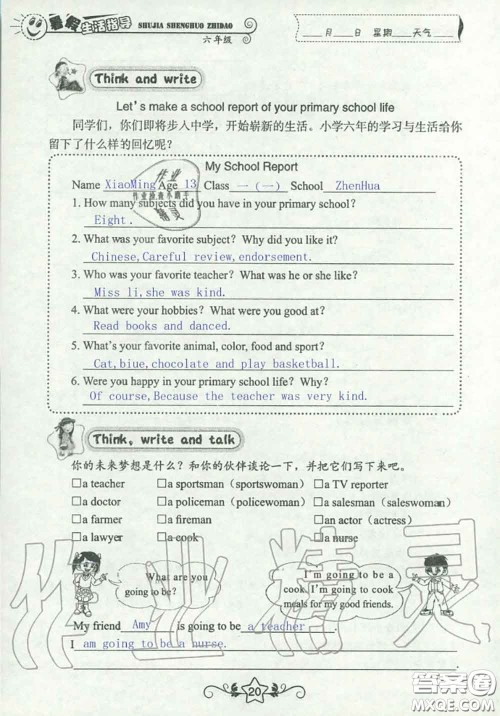 暑假
生活指导
SHUJIA SHENGHUO ZHIDAO
六年级
___月___日 星期___天气___
Think and write
Let's make a school report of your primary school life
同学们，你们即将步入中学，开始崭新的生活。小学六年的学习与生活给你
留下了什么样的回忆呢？
My School Report
Name XiaoMing Age 13 Class 一 (一) School ZhenHua
1. How many subjects did you have in your primary school?
Eight.
2. What was your favorite subject? Why did you like it?
Chinese,Careful review,endorsement.
3. Who was your favorite teacher? What was he or she like?
Miss li,she was kind.
4. What were your hobbies? What were you good at?
Read books and danced.
5. What's your favorite animal, color, food and sport?
Cat,biue,chocolate and play basketball.
6. Were you happy in your primary school life? Why?
Of course,Because the teacher was very kind.
作业
作业检查小助手
精灵
Think, write and talk
你的未来梦想是什么？和你的伙伴谈论一下，并把它们写下来吧。
□a teacher □a sportsman (sportswoman) □a TV reporter
□a doctor □a policeman (policewoman) □a salesman (saleswoman)
□a farmer □a fireman □an actor (actress)
□a lawyer □a cook □a nurse
What are you
going to be?
I'm going to be a
cook. I'm going to cook
meals for my good friends.
作业精灵
My friend Amy is going to be a teacher.
I am going to be a nurse.
20
答案圈
MXQE.COM